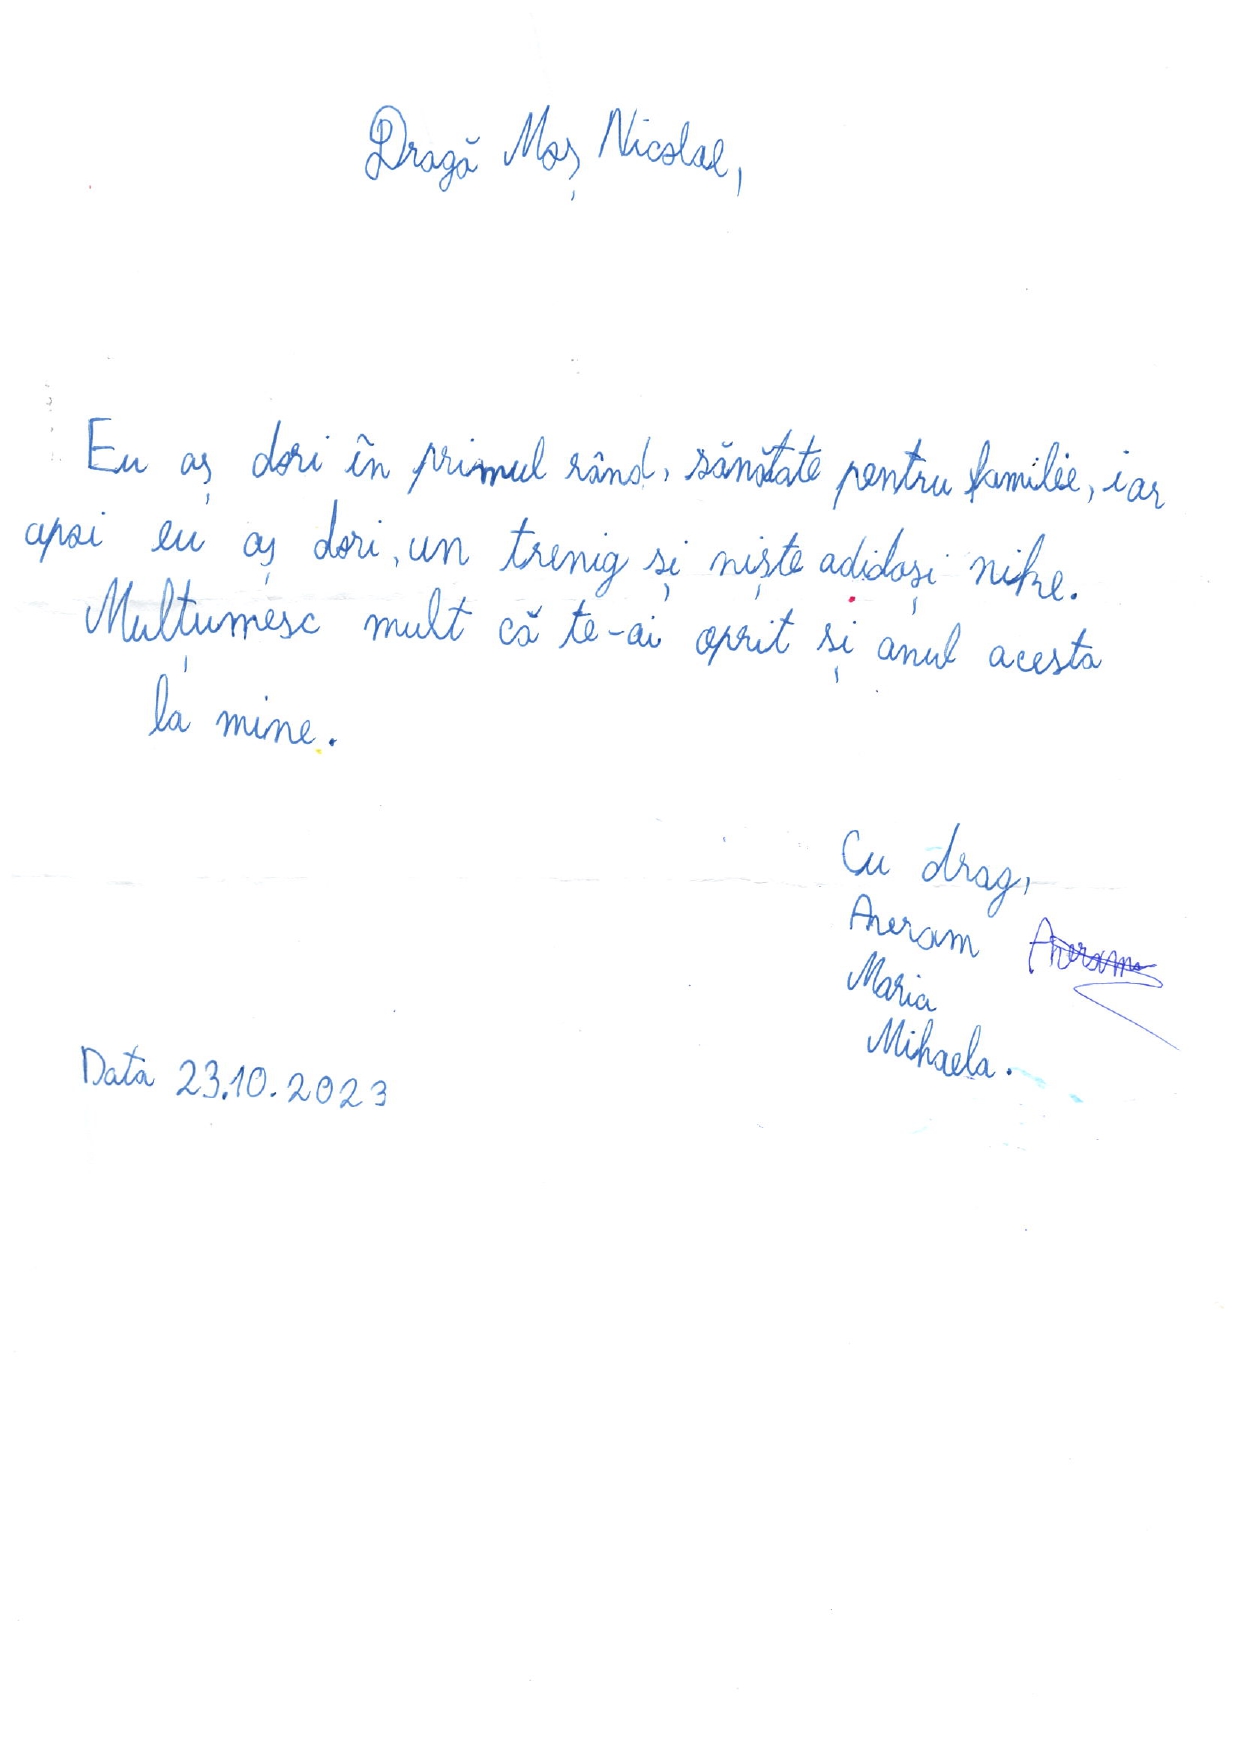 Dragă Moș Nicolae,
Eu aș dori în primul rând, sănătate pentru familie, iar
apoi eu aș dori, un trenig și niște adidași nike.
Mulțumesc mult că te-ai oprit și anul acesta
la mine.
Cu drag,
Averam
Maria
Mihaela.
Data 23.10.2023